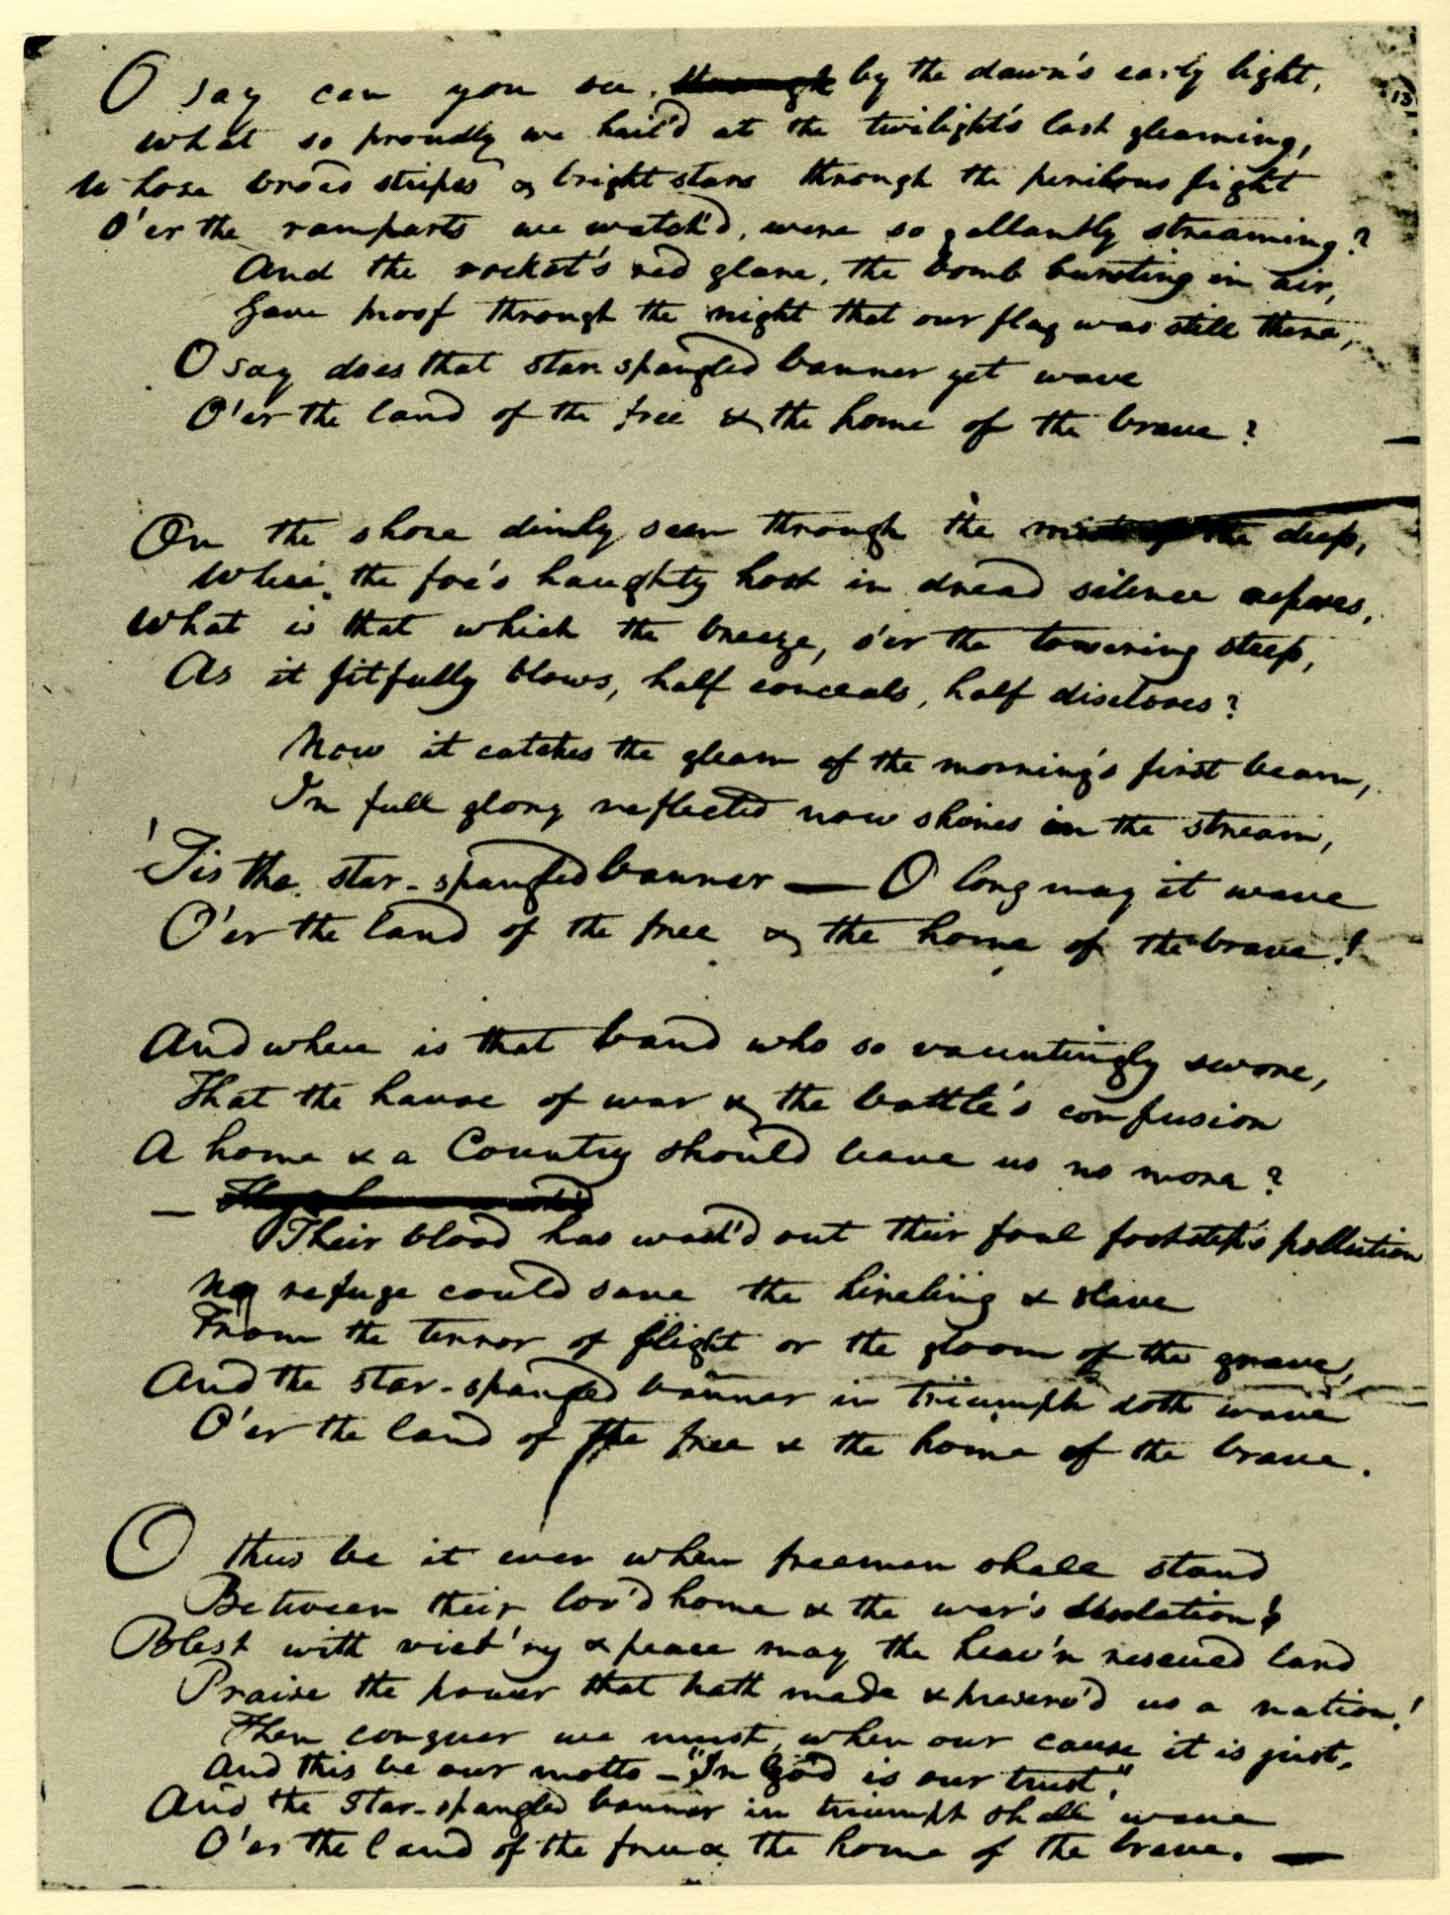 O say can you see, ~~through~~ by the dawn's early light,
What so proudly we hail'd at the twilight's last gleaming,
Whose broad stripes & bright stars through the perilous fight
O'er the ramparts we watch'd, were so gallantly streaming?
And the rocket's red glare, the bomb bursting in air,
Gave proof through the night that our flag was still there,
O say does that star spangled banner yet wave
O'er the land of the free & the home of the brave?
On the shore dimly seen through the mists of the deep,
Where the foe's haughty host in dread silence reposes,
What is that which the breeze, o'er the towering steep,
As it fitfully blows, half conceals, half discloses?
Now it catches the gleam of the morning's first beam,
In full glory reflected now shines in the stream,
'Tis the star-spangled banner — O long may it wave
O'er the land of the free & the home of the brave!
And where is that band who so vauntingly swore,
That the havoc of war & the battle's confusion
A home & a Country should leave us no more?
—
Their blood has wash'd out their foul footstep's pollution
No refuge could save the hireling & slave
From the terror of flight or the gloom of the grave,
And the star-spangled banner in triumph doth wave
O'er the land of the free & the home of the brave.
O thus be it ever when freemen shall stand
Between their lov'd home & the war's desolation!
Blest with vict'ry & peace may the heav'n rescued land
Praise the power that hath made & preserv'd us a nation!
Then conquer we must, when our cause it is just,
And this be our motto — "In God is our trust,"
And the star-spangled banner in triumph shall wave
O'er the land of the free & the home of the brave. —